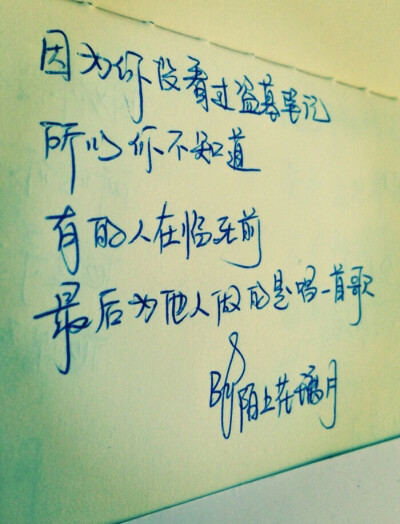 因为你没看过盗墓笔记
所以你不知道
有的人在临死前
最后为他人做的是唱一首歌
By陌上花璃月